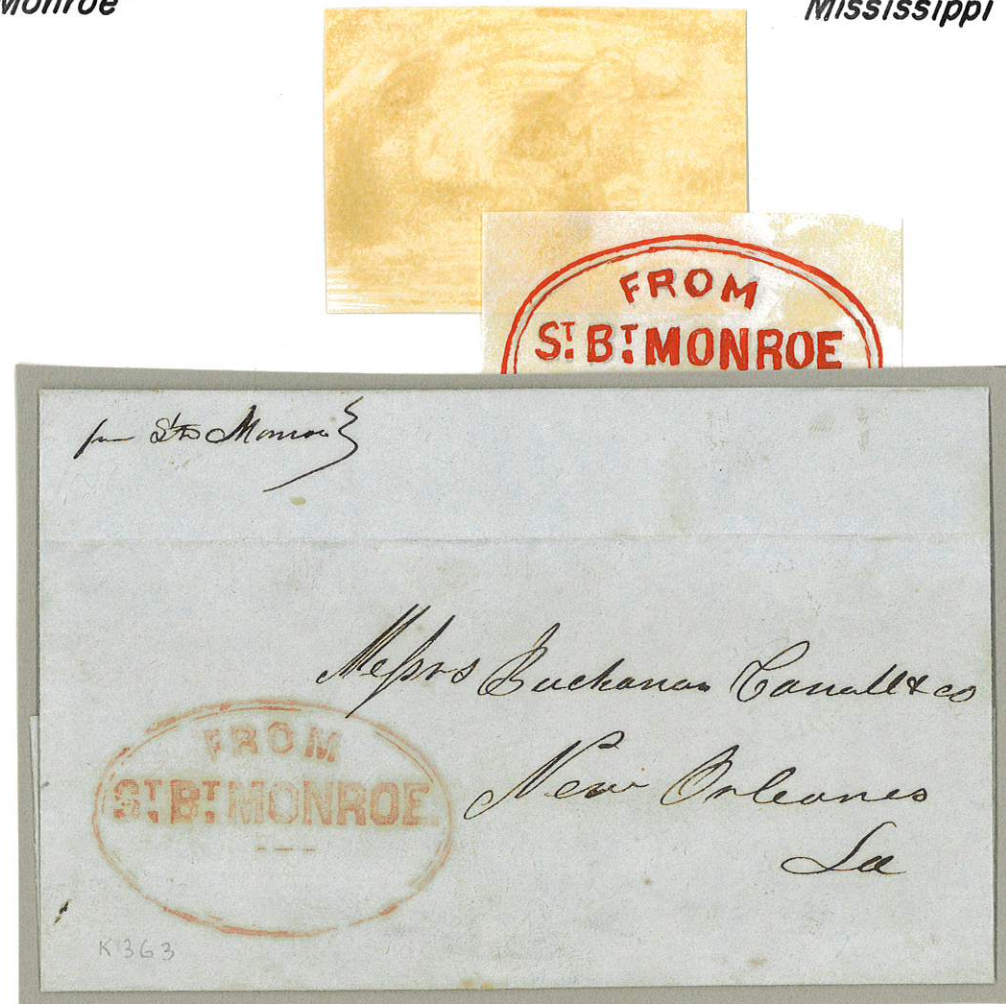 Monroe Mississippi
FROM
ST. BT. MONROE
Messrs Buchanan Carroll & co
New Orleanes
La
FROM
ST. BT. MONROE.
K363